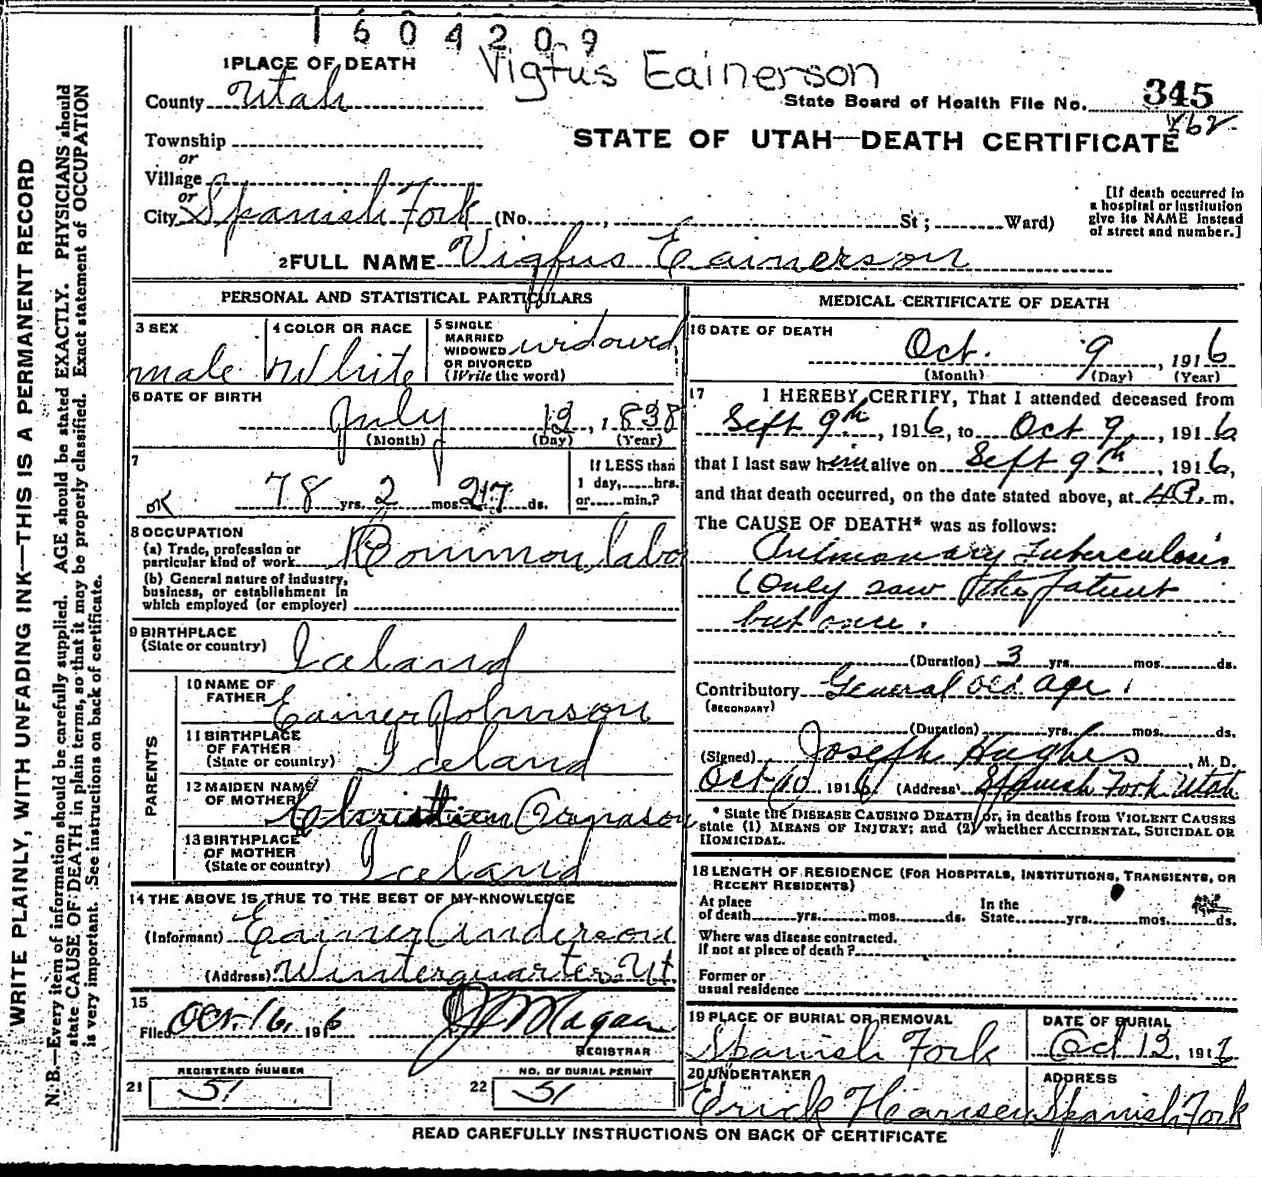 1604209
Vigfus Eainerson
1 PLACE OF DEATH
County Utah
State Board of Health File No. 345
462
Township
STATE OF UTAH—DEATH CERTIFICATE
or
Village
or
City Spanish Fork (No. , St; Ward)
[If death occurred in
a hospital or institution
give its NAME instead
of street and number.]
2 FULL NAME Vigfus Eainerson
PERSONAL AND STATISTICAL PARTICULARS
3 SEX
male
4 COLOR OR RACE
White
5 SINGLE
MARRIED
WIDOWED
OR DIVORCED
(Write the word)
widowed
6 DATE OF BIRTH
July 12, 1838
(Month) (Day) (Year)
7
OK 78 yrs. 2 mos. 27 ds.
If LESS than
1 day, hrs.
or min.?
8 OCCUPATION
(a) Trade, profession or
particular kind of work Common labor
(b) General nature of industry,
business, or establishment in
which employed (or employer)
9 BIRTHPLACE
(State or country) Iceland
PARENTS
10 NAME OF
FATHER Eainer Johnson
11 BIRTHPLACE
OF FATHER
(State or country) Iceland
12 MAIDEN NAME
OF MOTHER Christian Arnason
13 BIRTHPLACE
OF MOTHER
(State or country) Iceland
14 THE ABOVE IS TRUE TO THE BEST OF MY KNOWLEDGE
(Informant) Eainer Anderson
(Address) Winterquarters. Ut
15
Filed Oct. 16, 1916
REGISTRAR
21 REGISTERED NUMBER
51
22 NO. OF BURIAL PERMIT
51
MEDICAL CERTIFICATE OF DEATH
16 DATE OF DEATH
Oct. 9, 1916
(Month) (Day) (Year)
17 I HEREBY CERTIFY, That I attended deceased from
Sept 9th, 1916, to Oct 9, 1916
that I last saw him alive on Sept 9th, 1916,
and that death occurred, on the date stated above, at 4 P. m.
The CAUSE OF DEATH* was as follows:
Pulmonary Tuberculosis
(Only saw the patient
but once.
(Duration) 3 yrs. mos. ds.
Contributory General old age.
(SECONDARY)
(Duration) yrs. mos. ds.
(Signed) Joseph Hughes, M. D.
Oct 10 1916 (Address) Spanish Fork Utah
* State the DISEASE CAUSING DEATH, or, in deaths from VIOLENT CAUSES
state (1) MEANS OF INJURY; and (2) whether ACCIDENTAL, SUICIDAL OR
HOMICIDAL.
18 LENGTH OF RESIDENCE (FOR HOSPITALS, INSTITUTIONS, TRANSIENTS, OR
RECENT RESIDENTS)
At place
of death yrs. mos. ds.
In the
State yrs. mos. ds.
Where was disease contracted.
If not at place of death?
Former or
usual residence
19 PLACE OF BURIAL OR REMOVAL
Spanish Fork
DATE OF BURIAL
Oct 12, 1916
20 UNDERTAKER
Erick Hansen
ADDRESS
Spanish Fork
READ CAREFULLY INSTRUCTIONS ON BACK OF CERTIFICATE
WRITE PLAINLY, WITH UNFADING INK—THIS IS A PERMANENT RECORD
N. B.—Every item of information should be carefully supplied. AGE should be stated EXACTLY. PHYSICIANS should
state CAUSE OF DEATH in plain terms, so that it may be properly classified. Exact statement of OCCUPATION
is very important. See instructions on back of certificate.